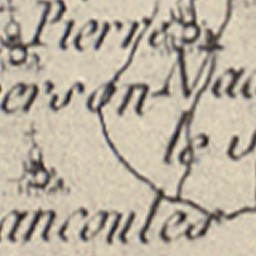 Pierre
erson-Mac
le
ancoules